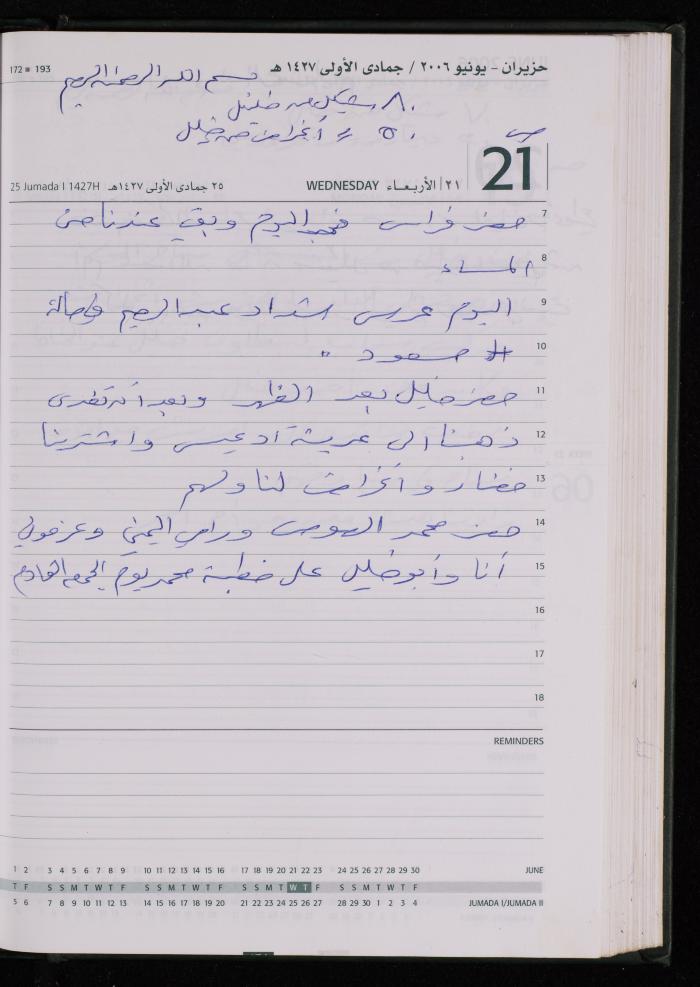 حزيران - يونيو ٢٠٠٦ / جمادى الأولى ١٤٢٧ هـ
172 ■ 193
بسم الله الرحمن الرحيم
٨٠ شيكل من خليل
٥٠ = أغراض من خليل
21
٢١ | الأربعاء WEDNESDAY
٢٥ جمادى الأولى ١٤٢٧هـ 25 Jumada I 1427H
7 حضر فراس اليوم وبقي عندنا حتى
8 المساء
9 اليوم عرس عبد الرحيم
10 # مسعود "
11 حضر خليل بعد الظهر وبعد أن تغدى
12 ذهبنا الى واشترينا
13 خضار وأغراض لنا ولهم
14 حضر محمد ورامي اليمني وعزموني
15 أنا وأبو خليل على خطبة محمد يوم الجمعة القادم
16
17
18
REMINDERS
1 2 3 4 5 6 7 8 9 10 11 12 13 14 15 16 17 18 19 20 21 22 23 24 25 26 27 28 29 30 JUNE
T F S S M T W T F S S M T W T F S S M T W T F S S M T W T F
5 6 7 8 9 10 11 12 13 14 15 16 17 18 19 20 21 22 23 24 25 26 27 28 29 30 1 2 3 4 JUMADA I/JUMADA II